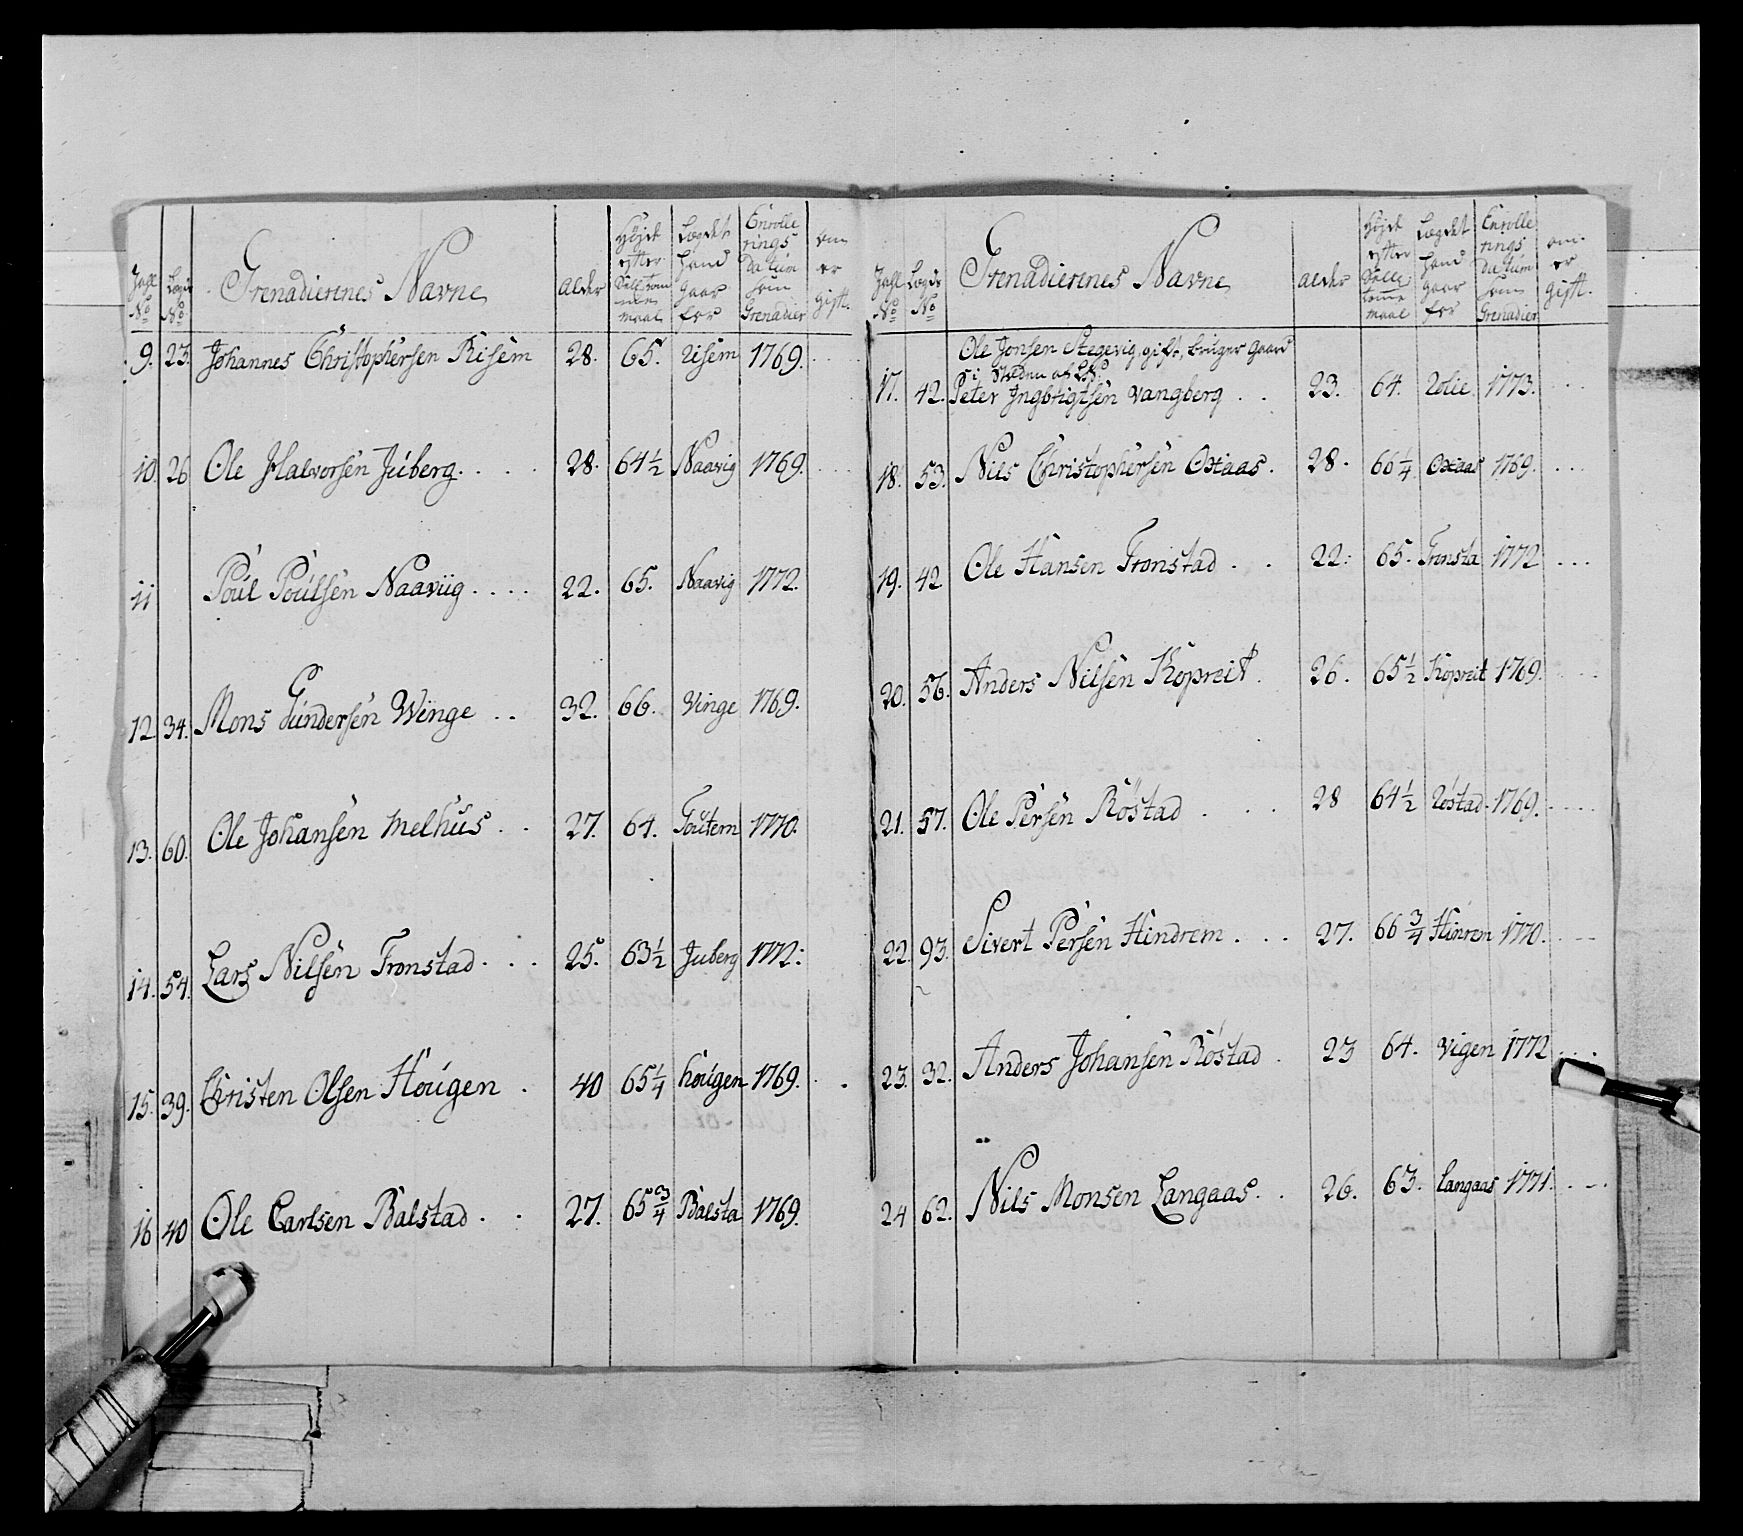 Grenadierenes Navne
alder
Enrolle
rings
Datum
som
Grenadier
om
er
gift.
9. 23. Johannes Christophersen Risem 28. 65. Risem 1769.
10. 26 Ole Halvorsen Juberg 28. 64½ Naavig 1769.
11 Poul Poulsen Naaviig 22. 65. Naavig 1772.
12 34. Mons Gundersen Winge 32. 66. Vinge 1769.
13. 60. Ole Johansen Melhus 27. 64. 1770.
14. 54. Lars Nilsen Tronstad 25. 63½ Juberg 1772.
15. 39. Christen Olsen Hougen 40 65¼ hougen 1769.
16 40 Ole Carlsen Balstad 27. 65¾ Balsta 1769.
Grenadierenes Navne
alder
Højde
efter
maal
Lægdet
hand
gaar
for
Enrolle
rings
Datum
som
Grenadier
om
er
gift.
Ole Jonsen Stegevig, gift, bruger Gaard
i Steden
17. 42. Peter Jngbrigtsen Vangberg 23. 64. 1773.
18. 53. Nils Christophersen Oxaas 28. 66¼ Oxaas 1769.
19. 42 Ole Hansen Tronstad 22. 65. Tronsta 1772
20. 56. Anders Nilsen Kopreit 26. 65½ Kopreit 1769.
21. 57. Ole Persen Røstad 28 64½ Røstad 1769.
22. 93. Sivert Persen Hindrem 27. 66¾ Hinrem 1770.
23. 32. Anders Johansen Røstad 23 64. Vigen 1772
24 62. Nils Monsen Langaas 26. 63. Langaas 1771.